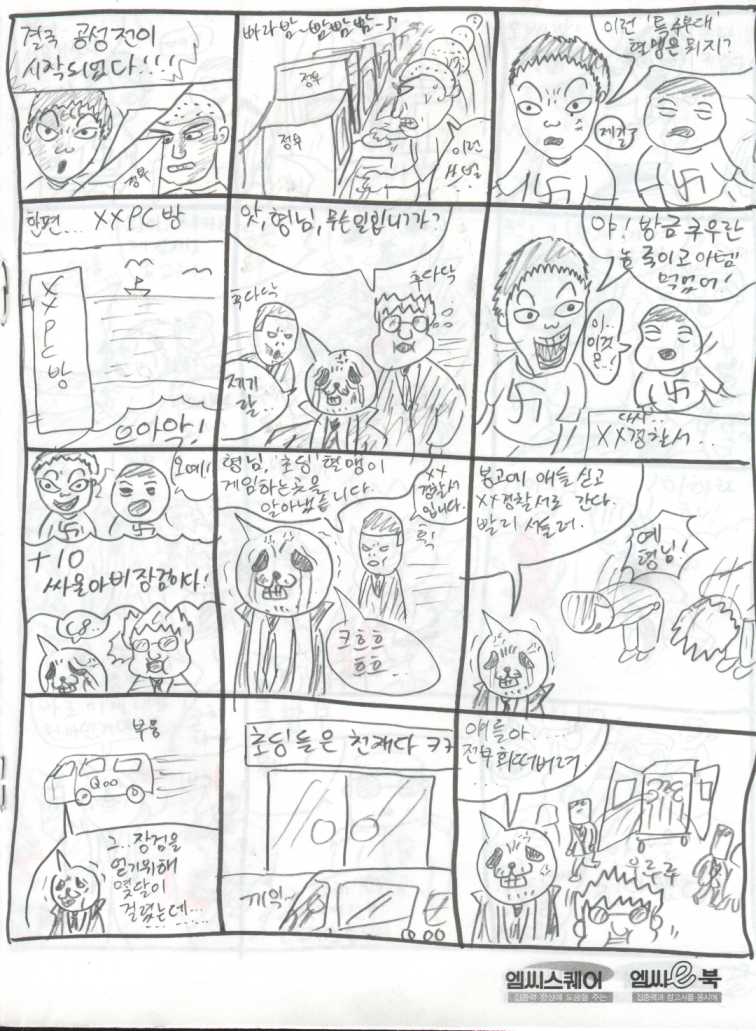 결국 공성전이
시작되었다!!!
정무
빠라밤~빰빰빰~♪
정무
정무
이런
씨벌
...
이런 '특수부대'
혈맹은 뭐지?
제길?
한편... XXPC방
XXPC방
으아악!
앗, 형님, 무슨일입니까?
후다닥
후다닥
제기
랄..
야! 방금 쿠우란
놈 죽이고 아템
먹었어!
이..
이것
은..!
다시...
XX경찰서...
오예!
+10
싸울아비장검이다!
C8..
형님, '초딩' 혈맹이
게임하는곳을
알아냈습니다.
XX
경찰서
입니다.
휙!
크흐흐
흐흐...
봉고에 애들 싣고
XX경찰서로 간다.
빨리 서둘러.
예
형님!
부웅
Qoo
그..장검을
얻기위해
몇달이
걸렸는데...
초딩들은 천재다 ㅋㅋ
끼익~
애들아.....
전부 회떠버려
우루루
엠씨스퀘어
집중력 향상에 도움을 주는
엠씨e북
집중력과 참고서를 동시에